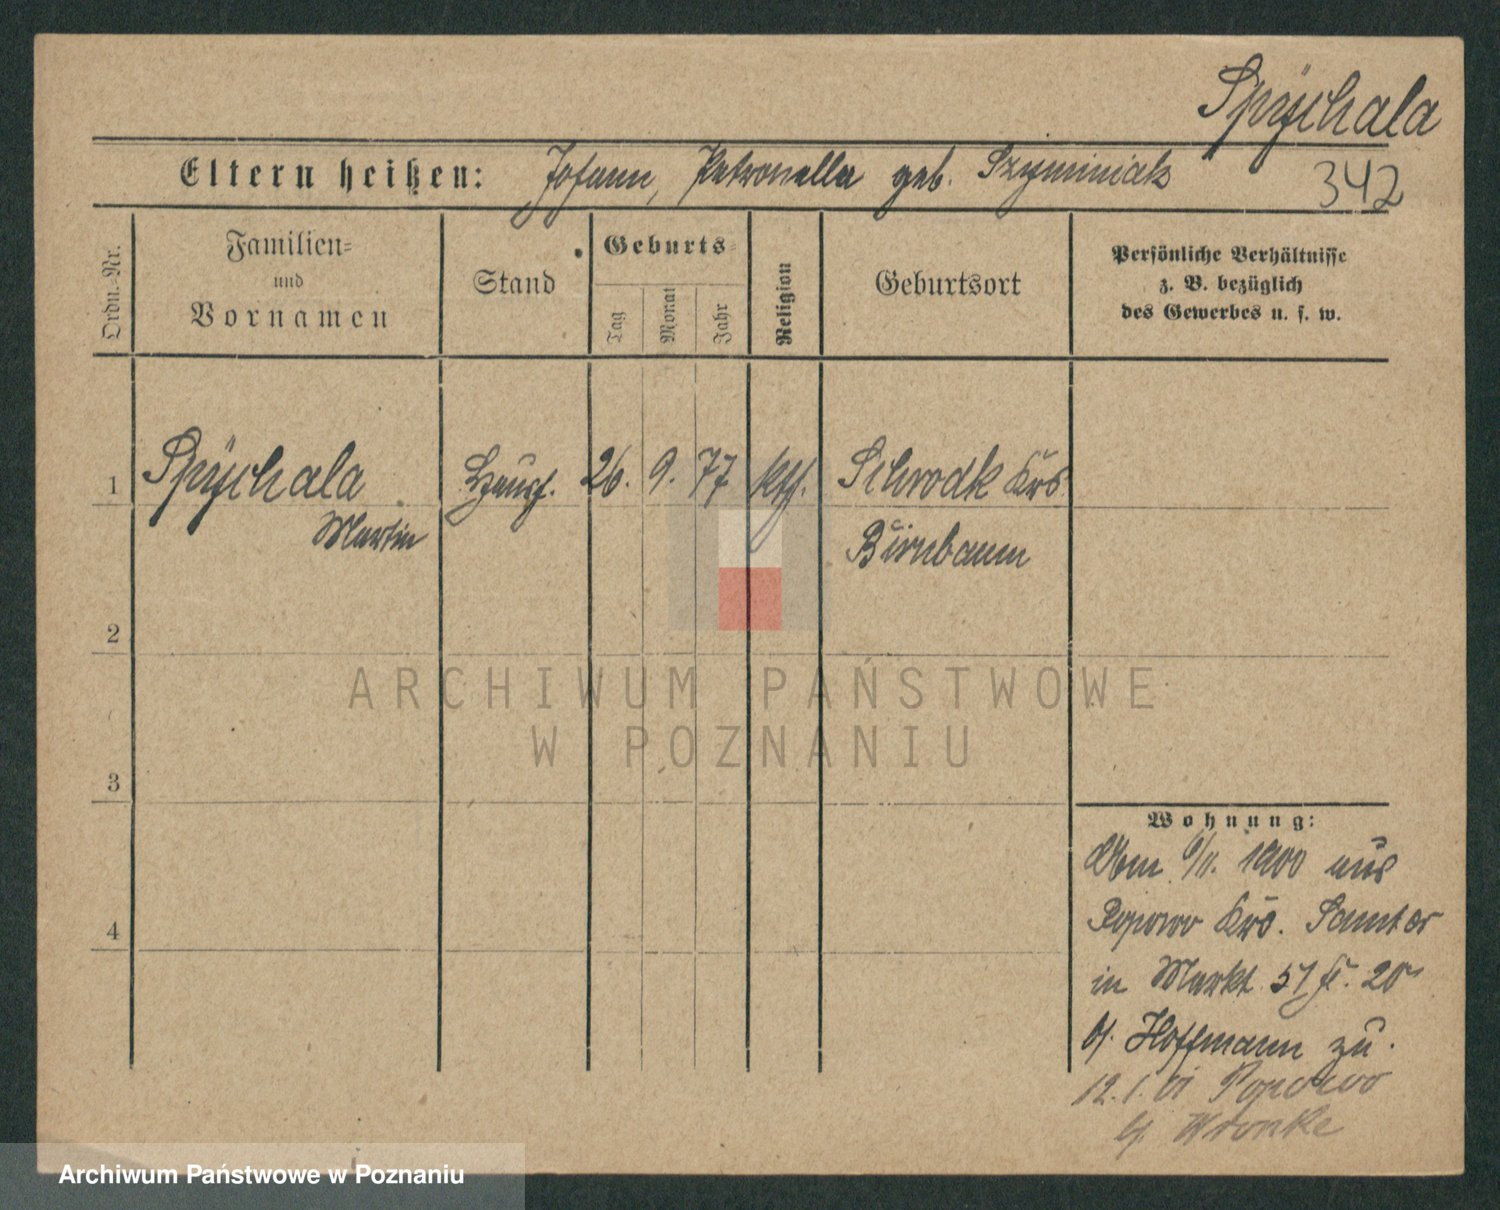 Spÿchala
Eltern heißen: Johann, Petronella geb. Szyminiak
342
Ordn.-Nr.
Familien-
und
Vornamen
Stand
Geburts-
Tag
Monat
Jahr
Religion
Geburtsort
Persönliche Verhältnisse
z. B. bezüglich
des Gewerbes u. s. w.
1 Spÿchala 26. 9. 77 kth. Schrodk Krs
Martin Birnbaum
2
3
4
Wohnung:
1900 aus
Popowo Krs. Samter
in Markt 57 20
Hoffmann zu.
12.1.01 Popowo
Wronke
ARCHIWUM PAŃSTWOWE
W POZNANIU
Archiwum Państwowe w Poznaniu